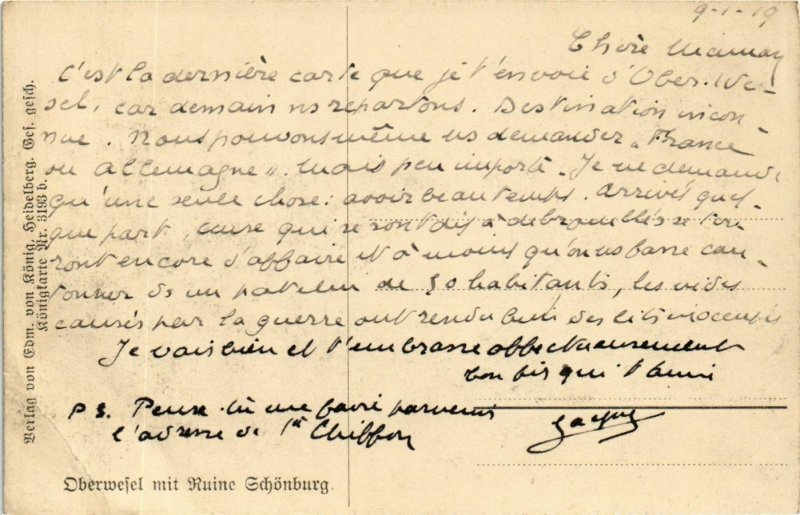 9-1-19
Chère Maman
C'est la dernière carte que je t'envoie d'Ober-We-
sel, car demain ns repartons. Destination incon-
nue. Nous pouvons même ns demander "France
ou Allemagne". Mais peu importe. Je ne demande
qu'une seule chose: avoir beau temps. Arrivés quel-
que part, ceux qui se sont déjà débrouillés se tire-
ront encore d'affaire et à moins qu'on ns fasse can-
tonner ds un patelin de 50 habitants, les vides
causés par la guerre ont rendu bien des lits
Je vais bien et t'embrasse affectueusement
ton fils qui t'aime
Jacques
PS. Pense-tu me faire parvenir
l'adresse de Chiffon
Oberwesel mit Ruine Schönburg.
Verlag von Edm. von König, Heidelberg. Ges. gesch.
Königkarte Nr. 3193 b.